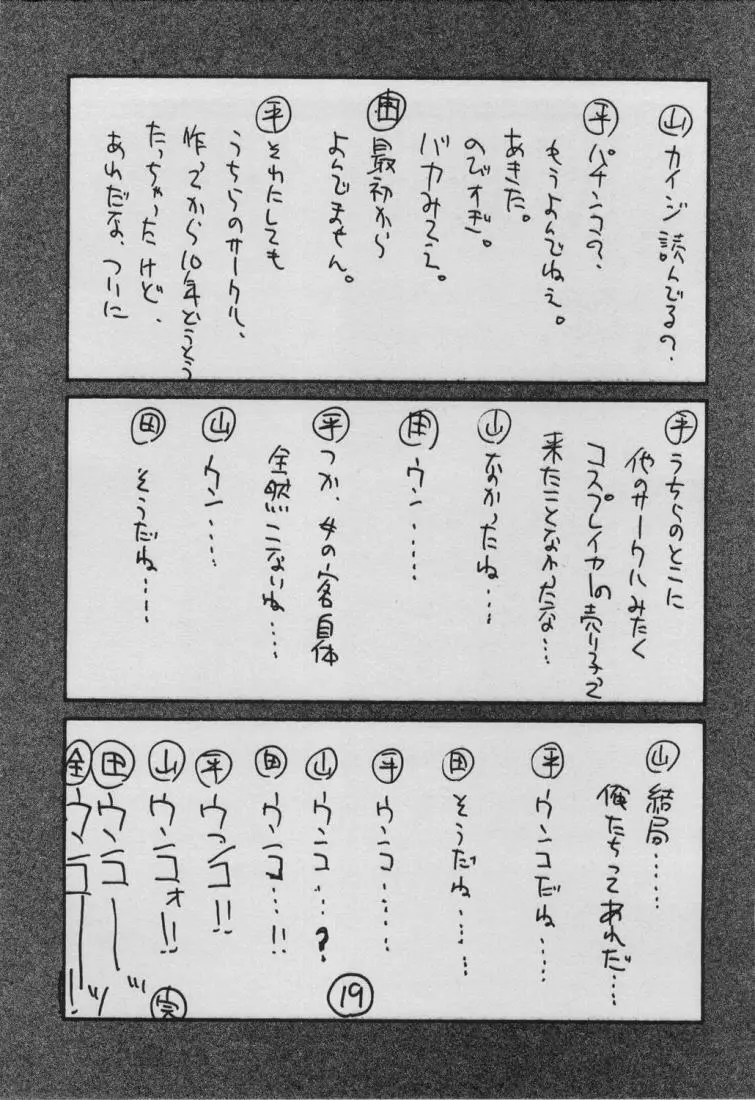 山 カイジ読んでるの?
平 パチンコの?
もうよんでねえ。
あきた。
のびすぎ。
バカみてえ。
田 最初から
よんでません。
平 それにしても
うちらのサークル、
作ってから10年どうとう
たっちゃったけど、
あれだな、ついに
平 うちらのとこに
他のサークルみたく
コスプレイヤーの売り子って
来たことなかったな…
山 なかったね…
田 ウン……
平 つか、女の客自体
全然こないね……
山 ウン……
田 そうだね……
山 結局……
俺たちってあれだ…
平 ウンコだね……
田 そうだね……
平 ウンコ……
山 ウンコ…?
田 ウンコ…!!
平 ウンコ!!
山 ウンコォ!!
田 ウンコーッ!!
全 ウンコーッ!!
完
19